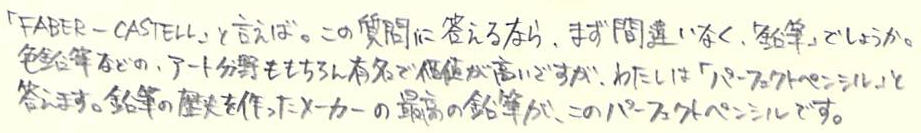 「FABER-CASTELL」と言えば。この質問に答えるなら、まず間違いなく、「鉛筆」でしょうか。
色鉛筆などの、アート分野ももちろん有名で価値が高いですが、わたしは「パーフェクトペンシル」と
答えます。鉛筆の歴史を作ったメーカーの最高の鉛筆が、このパーフェクトペンシルです。